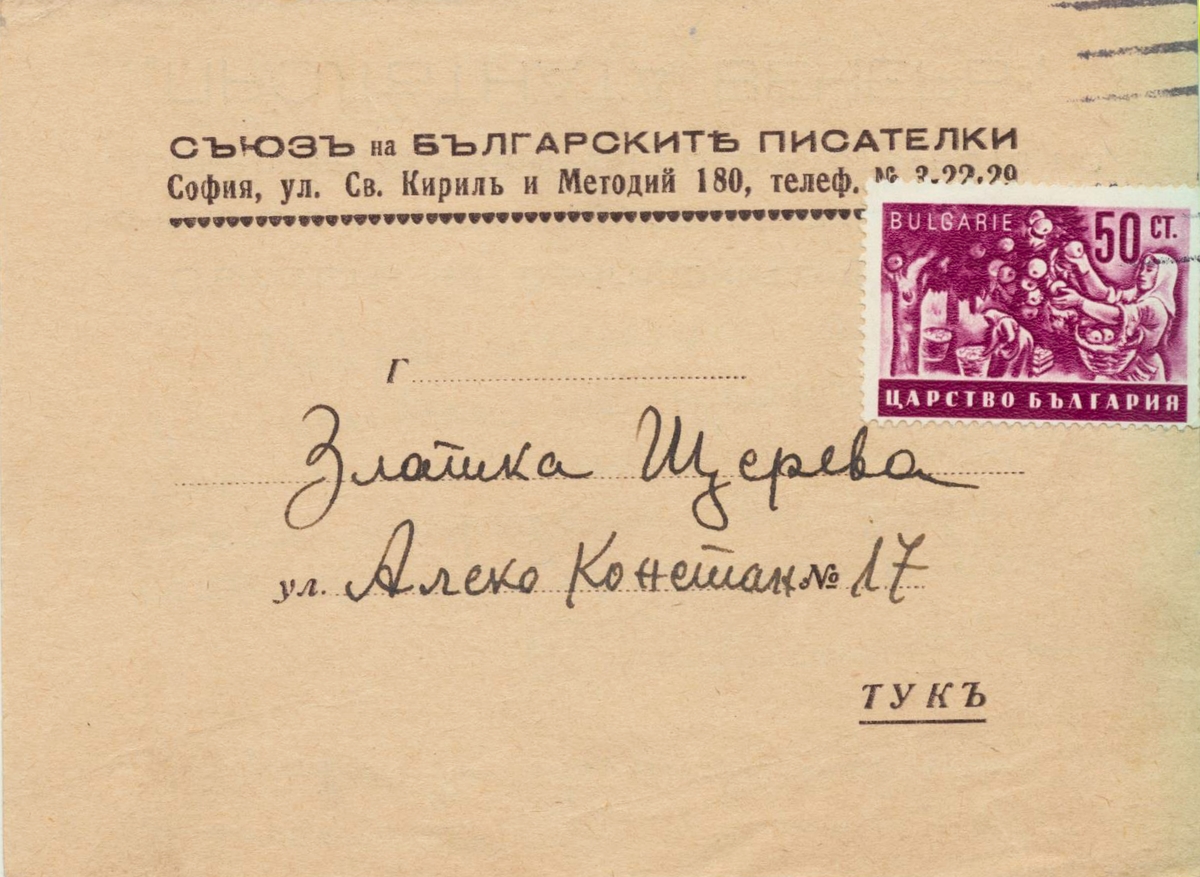 СЪЮЗЪ на БЪЛГАРСКИТѢ ПИСАТЕЛКИ
София, ул. Св. Кирилъ и Методий 180, телеф. № 3-22-29
BULGARIE 50 СТ.
ЦАРСТВО БЪЛГАРИЯ
Г
Златка Щерева
ул. Алеко Констан № 17
ТУКЪ